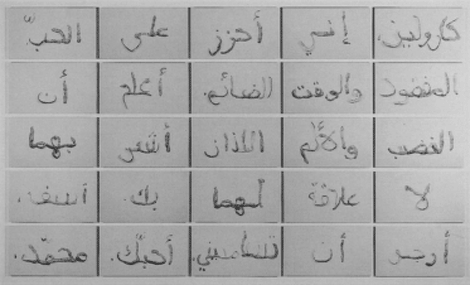 كارولين. إنني أحزن على الحبّ
المفقود والوقت الضائع. أعلم أن
الغضب والألم اللذان أشعر بهما
لا علاقة لهما بك. آسف.
أرجو أن تسامحيني. أحبّك. محمّد.